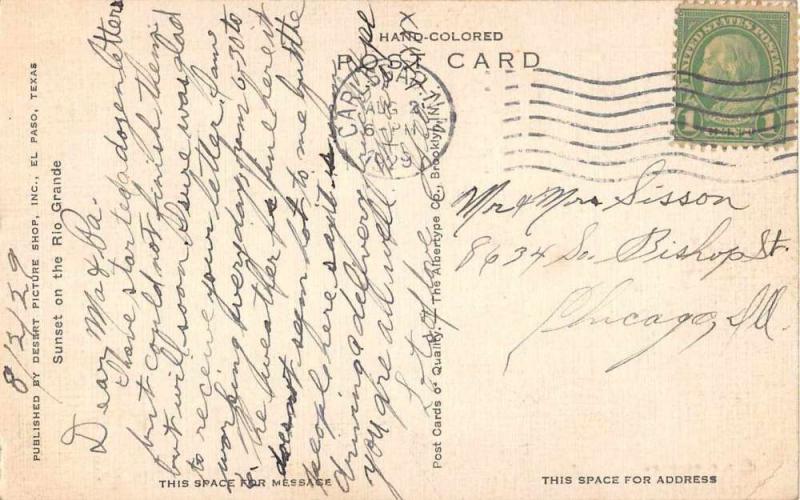 8/2/29
PUBLISHED BY DESERT PICTURE SHOP, INC., EL PASO, TEXAS
Sunset on the Rio Grande
Dear Ma & Pa.
I have started a dosen letters
but could not finish them
but will soon. I sure was glad
to receive your letter. I am
working everydays from 6:30 to
the weather is fine here it
does not seem hot to me but the
people here say it is warm
driving a delivery truck
you are all well
THIS SPACE FOR MESSAGE
Post Cards of Quality. — The Albertype Co., Brooklyn, N.Y.
HAND-COLORED
POST CARD
AUG 2
UNITED STATES POSTAGE
1 CENT 1
Mr & Mrs Sisson
8634 So. Bishop St.
Chicago, Ill.
THIS SPACE FOR ADDRESS